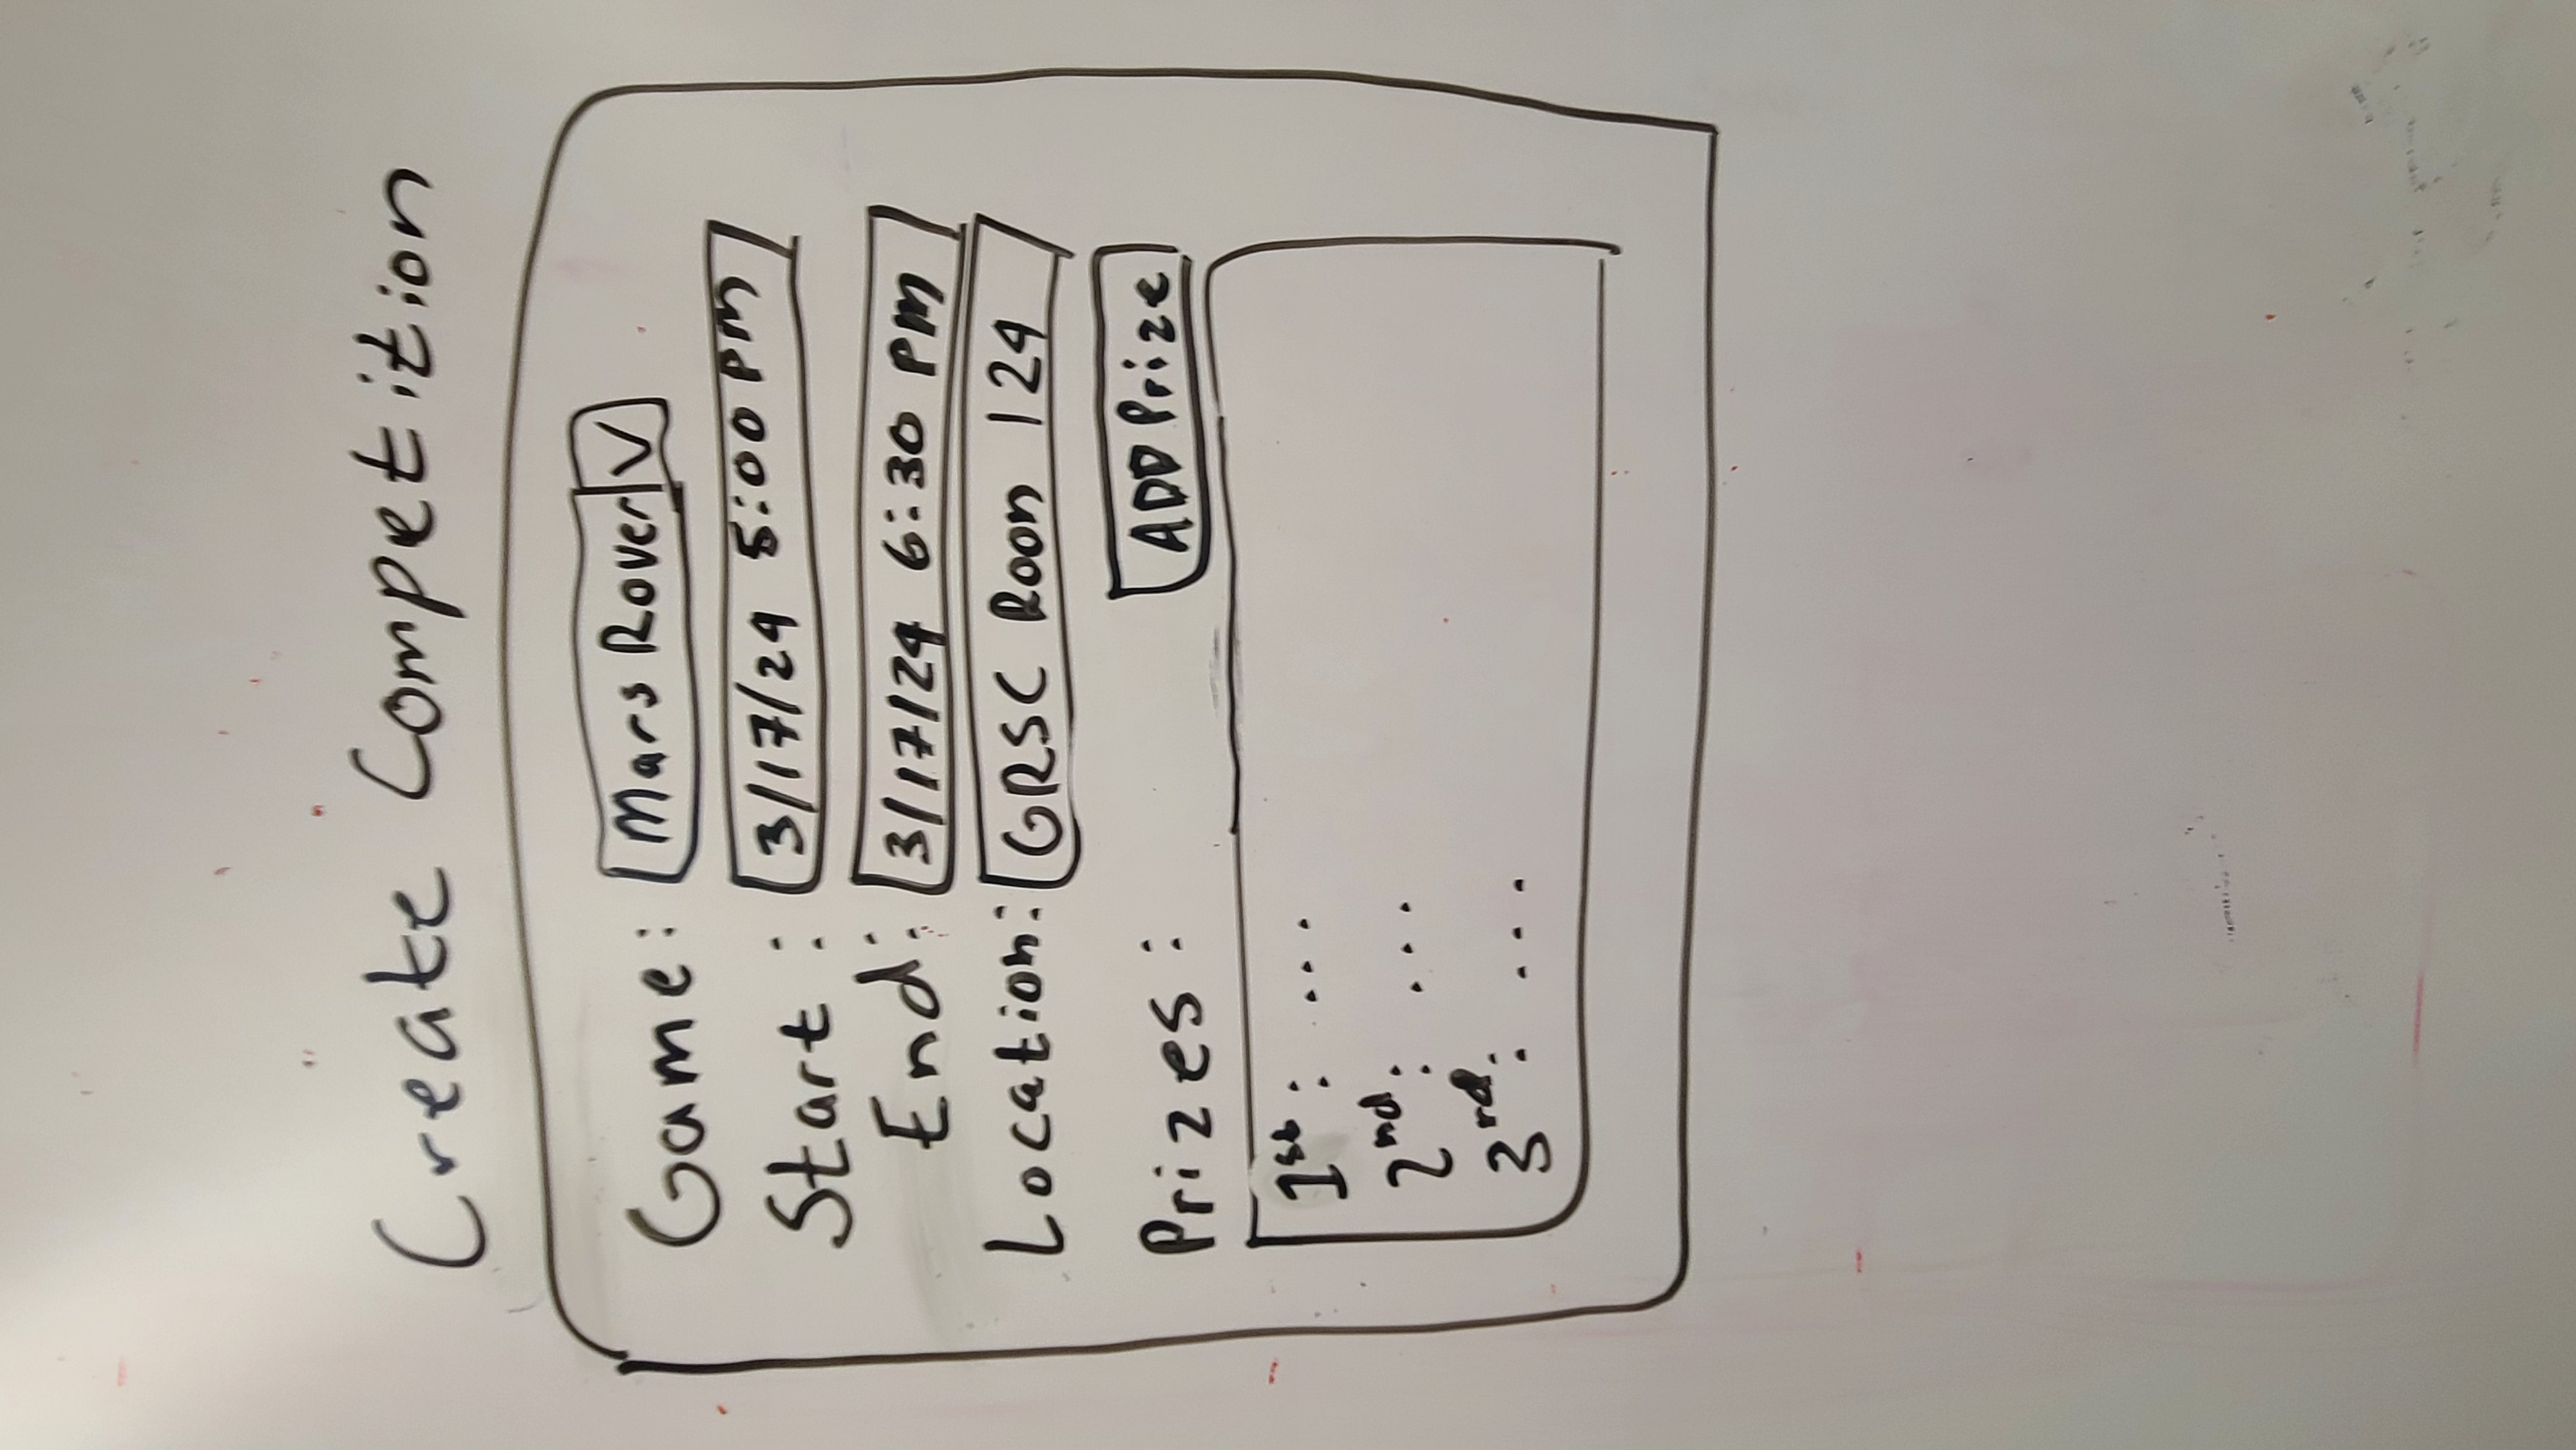 Create Competition
Game: Mars Rover V
Start: 3/17/24 5:00 PM
End: 3/17/24 6:30 PM
Location: GRSC Roon 124
Prizes: ADD Prize
1st: ...
2nd: ...
3rd: ...